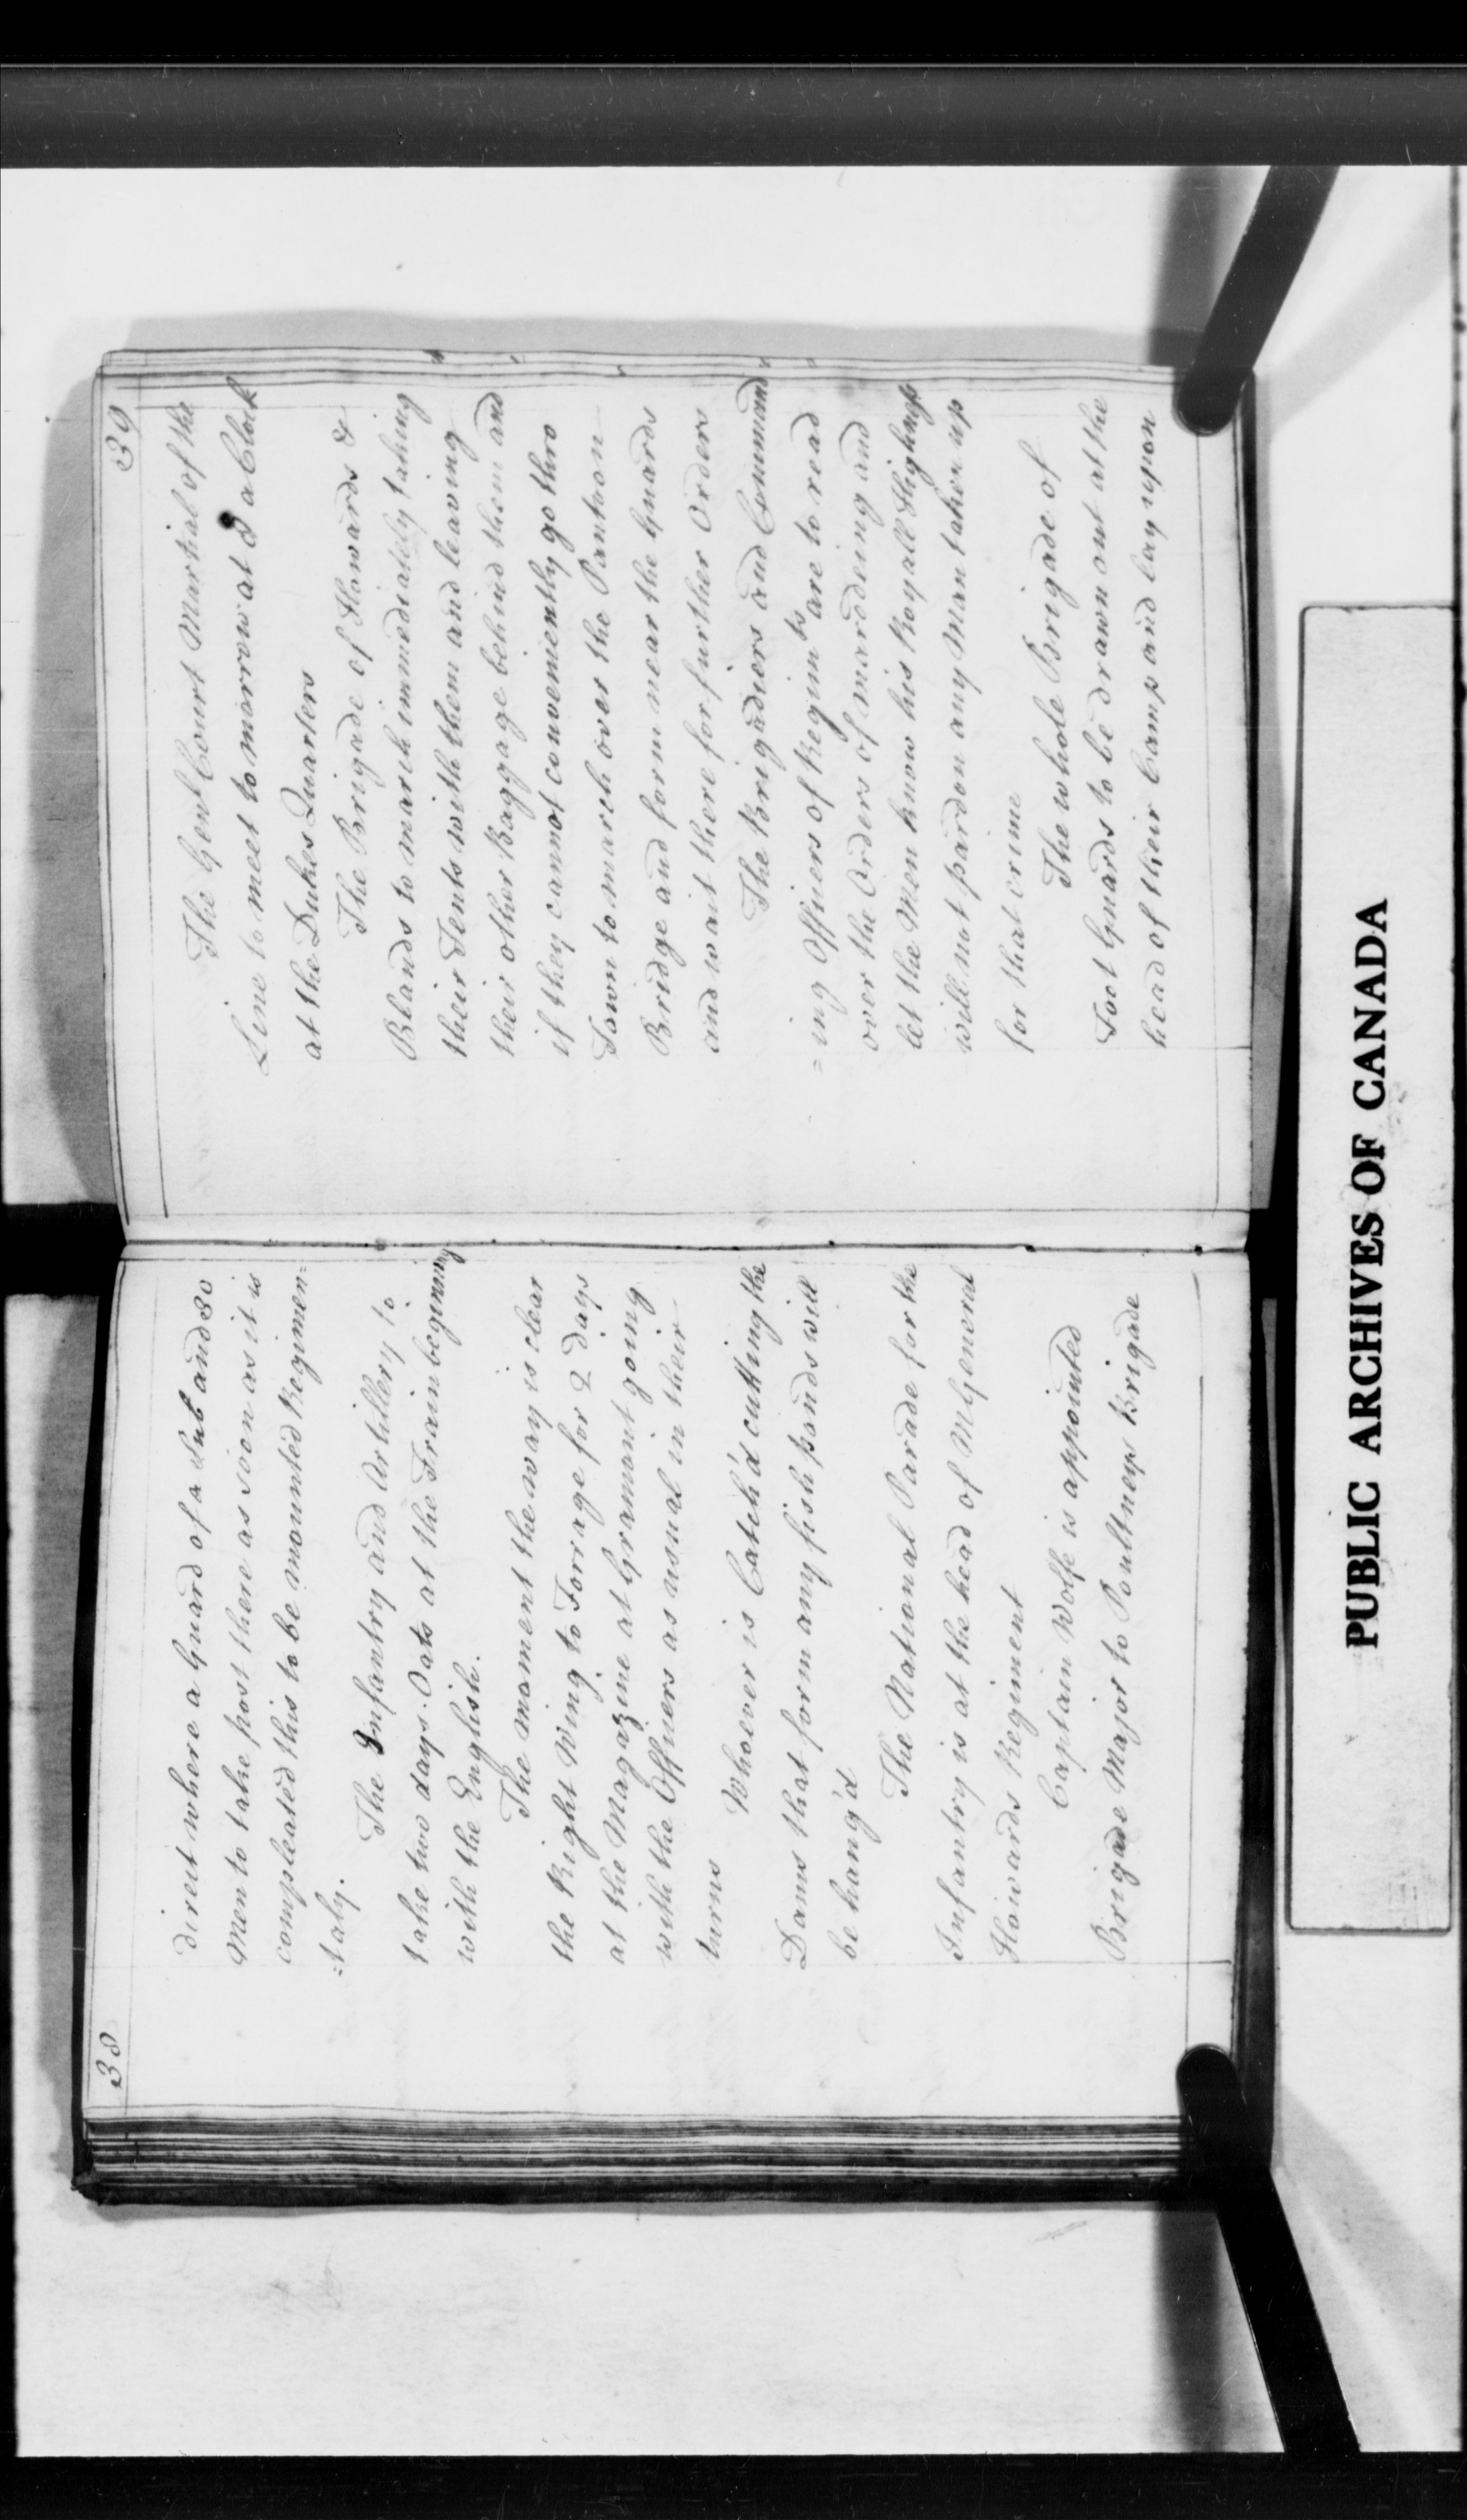 38
direct where a Guard of a Sub and 30
Men to take post there as soon as it is
compleated this to be mounted Regimen=
=taly.
The Infantry and Artillery to
take two days Oats at the Train begining
with the English.
The moment the way is clear
the Right Wing to Forrage for 2 days
at the Magazine at Gramont going
with the Officers as usual in their
turns
Whoever is Catch'd cutting the
Dams that form any fish ponds will
be hang'd
The National Parade for the
Infantry is at the head of M General
Howards Regiment
Captain Wolfe is appointed
Brigade Major to Poultneys Brigade
39
The Genl Court Martial of the
Line to meet to morrow at 8 a Clock
at the Dukes Quarters
The Brigade of Howards &
Blands to march immediately taking
their Tents with them and leaving
their other Baggage behind them and
if they cannot conveniently go thro
Town to march over the Pantoon
Bridge and form near the Guards
and wait there for further Orders
The Brigadiers and Command
=ing Officers of Regimts are to read
over the Orders of marodeing and
let the Men know his Royall Highness
will not pardon any Man taken up
for that crime
The whole Brigade of
Foot Guards to be drawn out at the
head of their Camp and lay upon
PUBLIC ARCHIVES OF CANADA